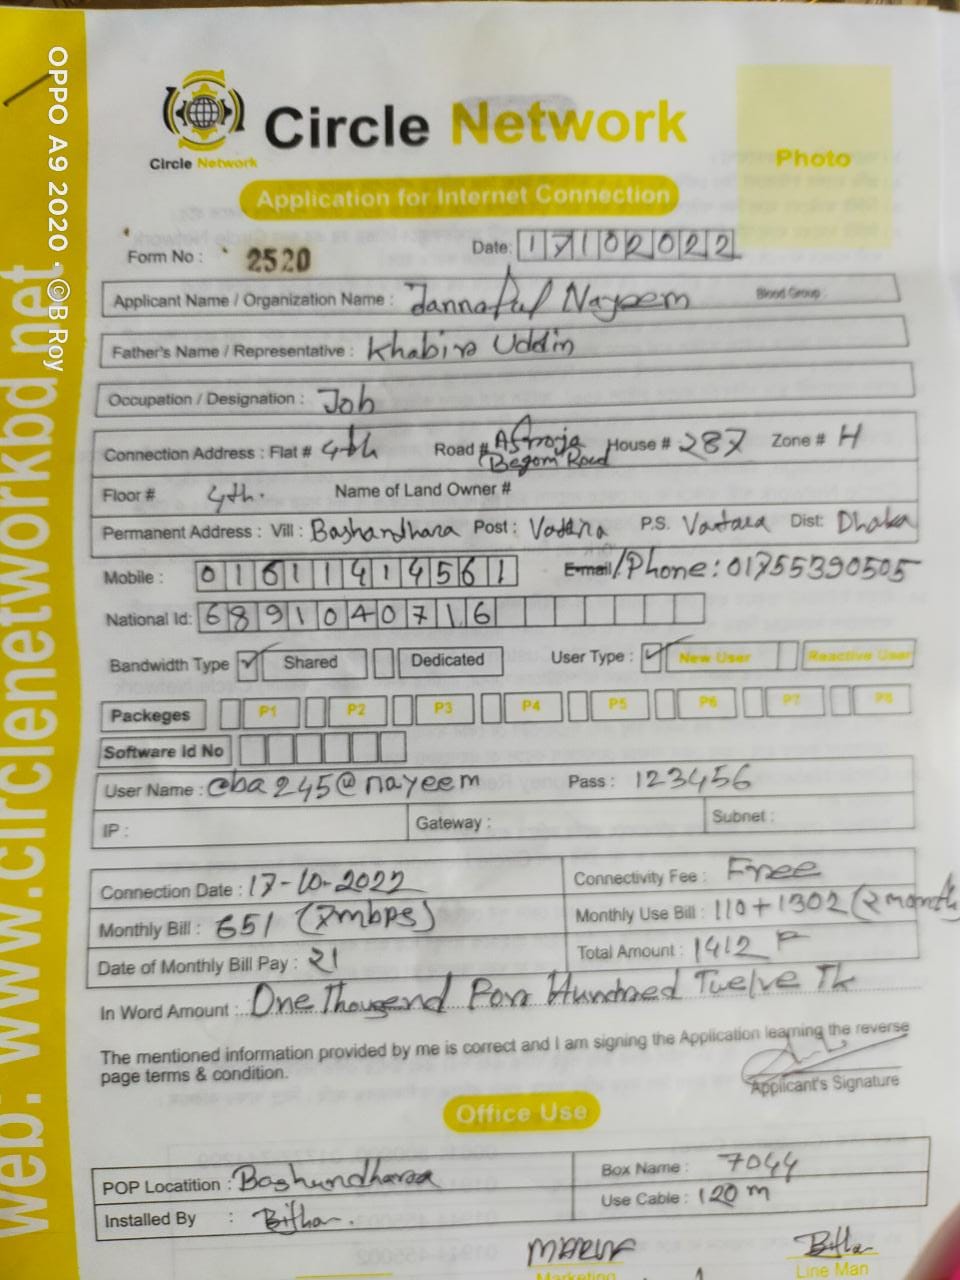 OPPO A9 2020 · ©B Roy
web: www.circlenetworkbd.net
Circle Network
Circle Network
Photo
Application for Internet Connection
Form No : 2520 Date: 17102022
Applicant Name / Organization Name : Jannatul Nayeem Blood Group :
Father's Name / Representative : Khabir Uddin
Occupation / Designation : Job
Connection Address : Flat # 4th Road # Afroja Begom Road House # 287 Zone # H
Floor # 4th. Name of Land Owner #
Permanent Address : Vill : Bashandhara Post : Vatara P.S. Vatara Dist: Dhaka
Mobile : 01611414561 E-mail/Phone: 01755390505
National Id: 6891040716
Bandwidth Type Shared Dedicated User Type : New User Reactive User
Packeges P1 P2 P3 P4 P5 P6 P7 P8
Software Id No
User Name : cba245@nayeem Pass : 123456
IP : Gateway : Subnet :
Connection Date : 17-10-2022 Connectivity Fee : Free
Monthly Bill : 651 (7mbps) Monthly Use Bill : 110+1302 (2 month
Date of Monthly Bill Pay : 21 Total Amount : 1412
In Word Amount : One Thousend Four Hundred Twelve Tk
The mentioned information provided by me is correct and I am signing the Application learning the reverse
page terms & condition.
Applicant's Signature
Office Use
POP Locatition : Bashundhara Box Name : 7044
Installed By : Bithan. Use Cable : 120 m
MARUF
Marketing Line Man